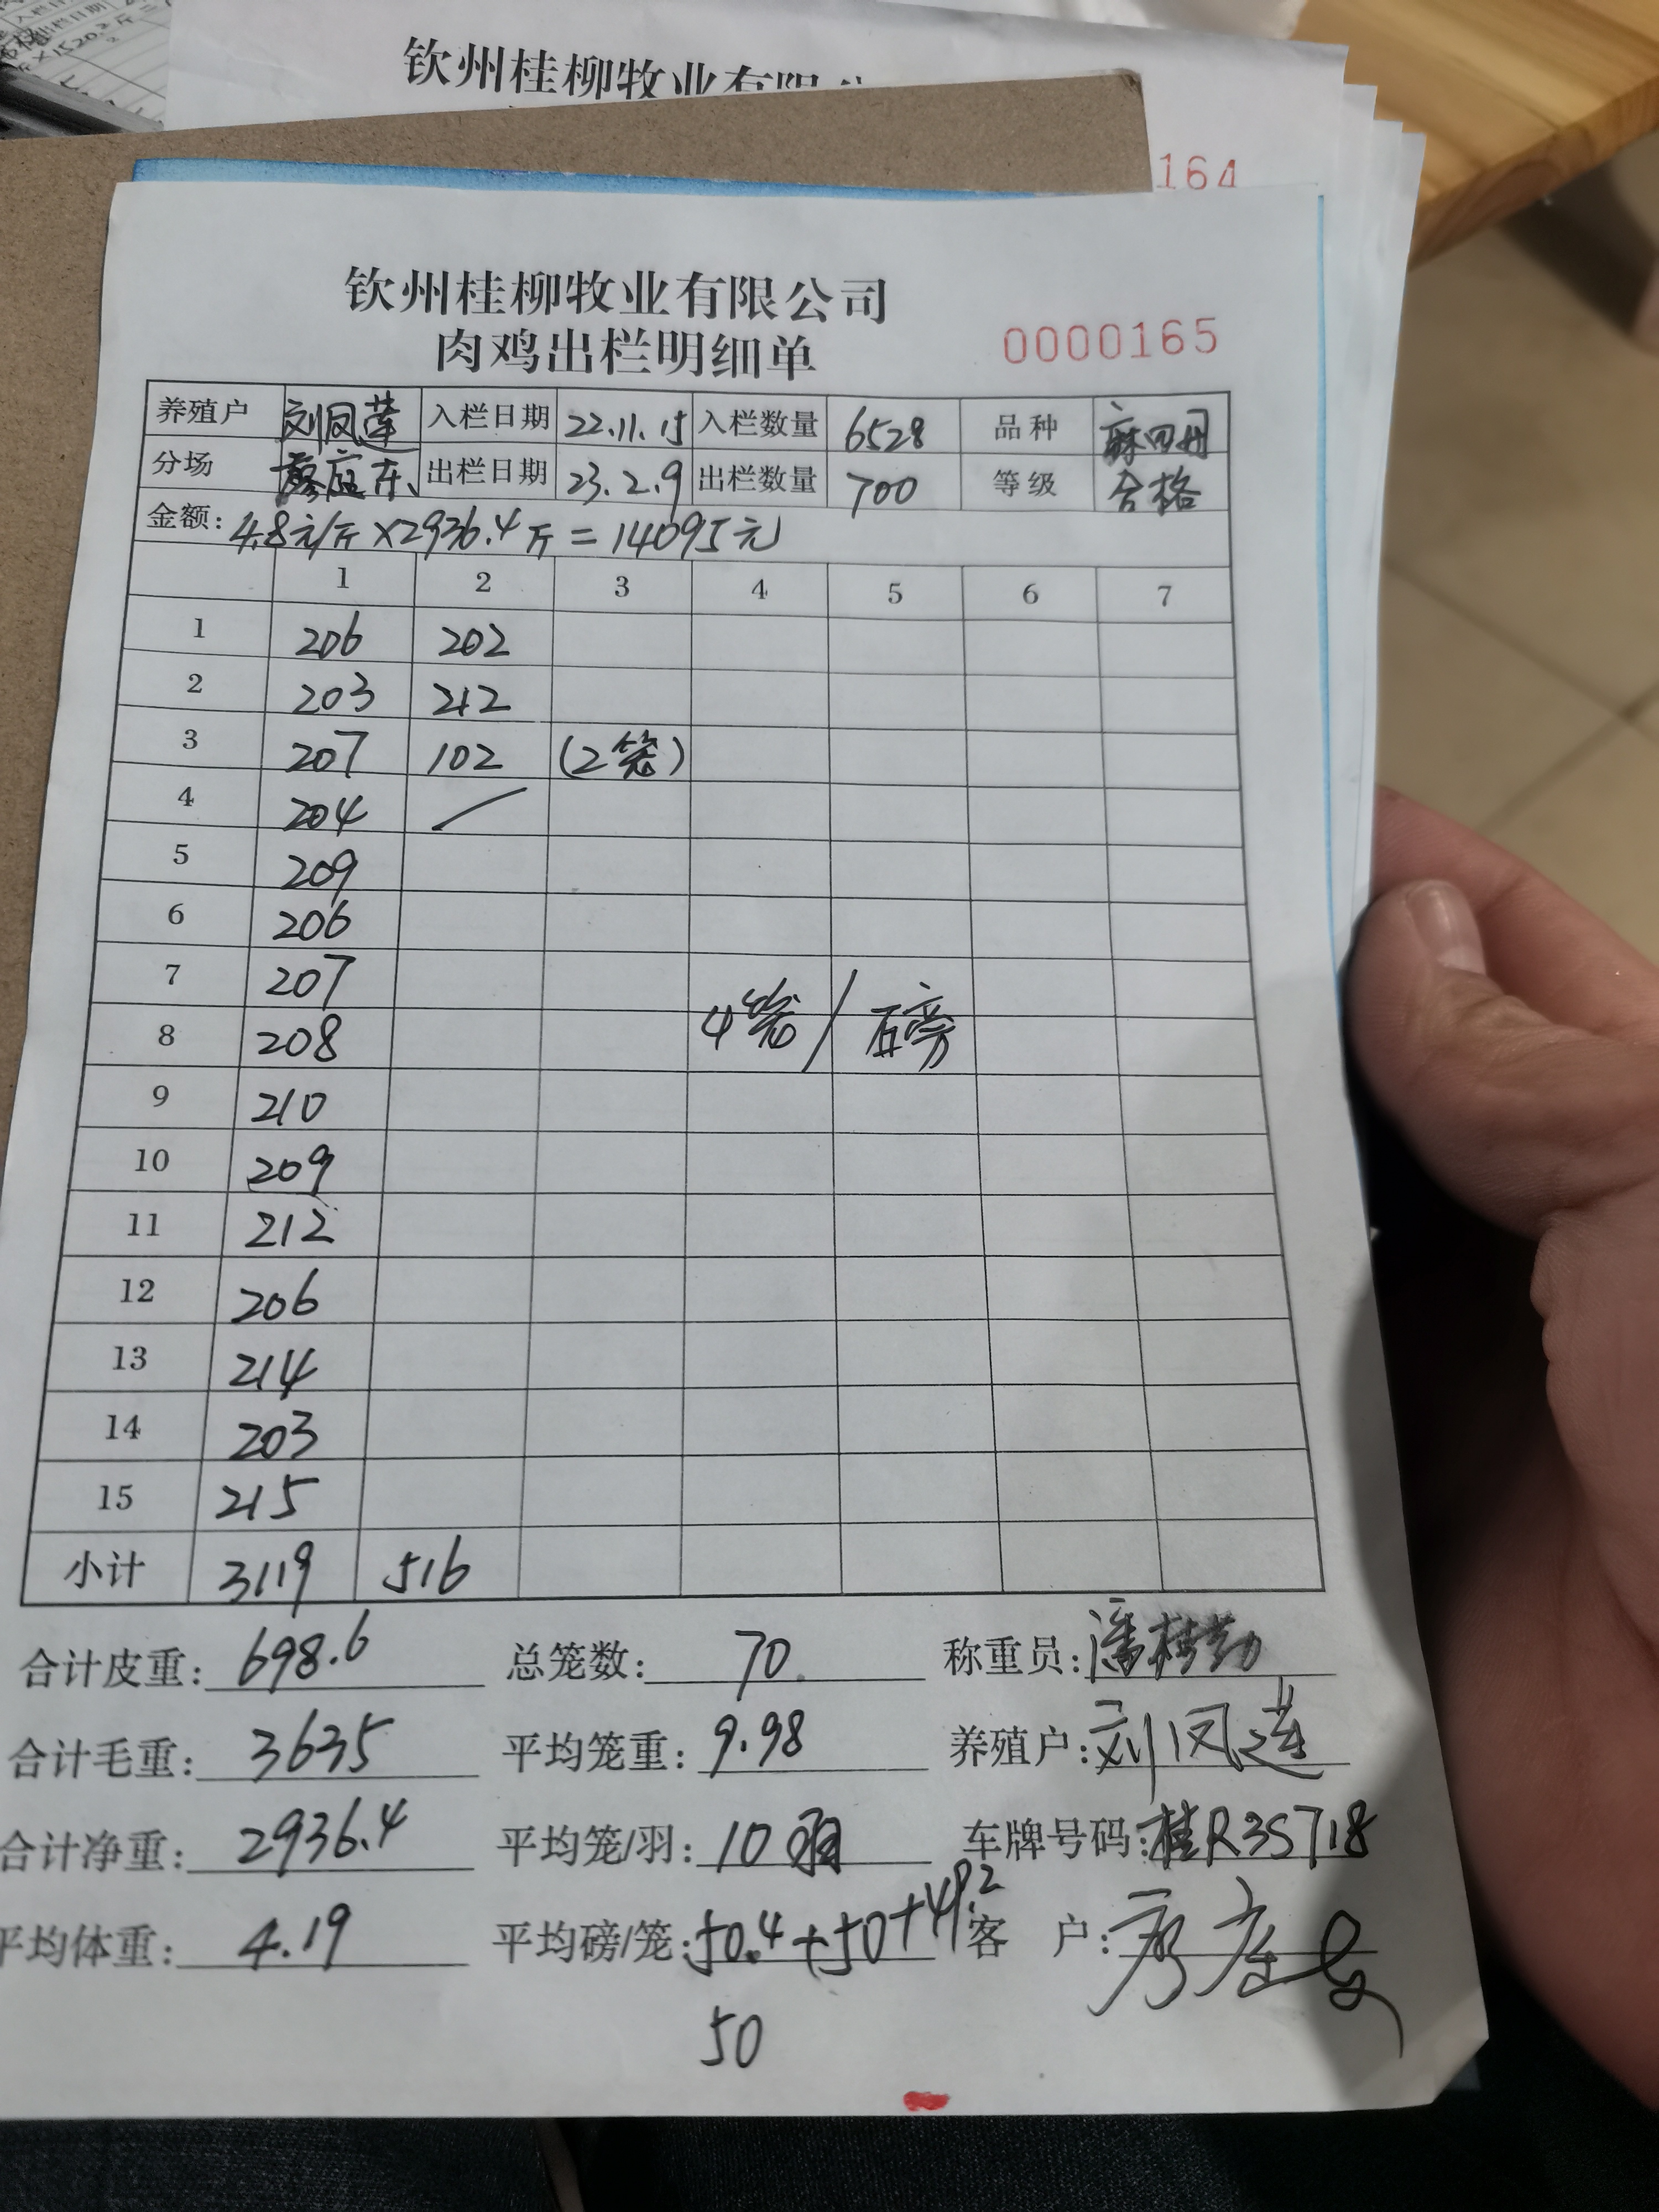 钦州桂柳牧业有限公
164
钦州桂柳牧业有限公司
肉鸡出栏明细单
0000165
养殖户 刘凤莲 入栏日期 22.11.15 入栏数量 6528 品种 麻四用
分场 廖庭东 出栏日期 23.2.9 出栏数量 700 等级 合格
金额: 4.8元/斤×2936.4斤=14095元
1 2 3 4 5 6 7
1 206 202
2 203 212
3 207 102 (2笼)
4 204 /
5 209
6 206
7 207
4笼/磅
8 208
9 210
10 209
11 212
12 206
13 214
14 203
15 215
小计 3119 516
合计皮重: 698.6 总笼数: 70 称重员: 潘桂勤
合计毛重: 3635 平均笼重: 9.98 养殖户: 刘凤莲
合计净重: 2936.4 平均笼/羽: 10羽 车牌号码: 桂R35718
平均体重: 4.19 平均磅/笼: 50.4+50+49.2 客户:
50